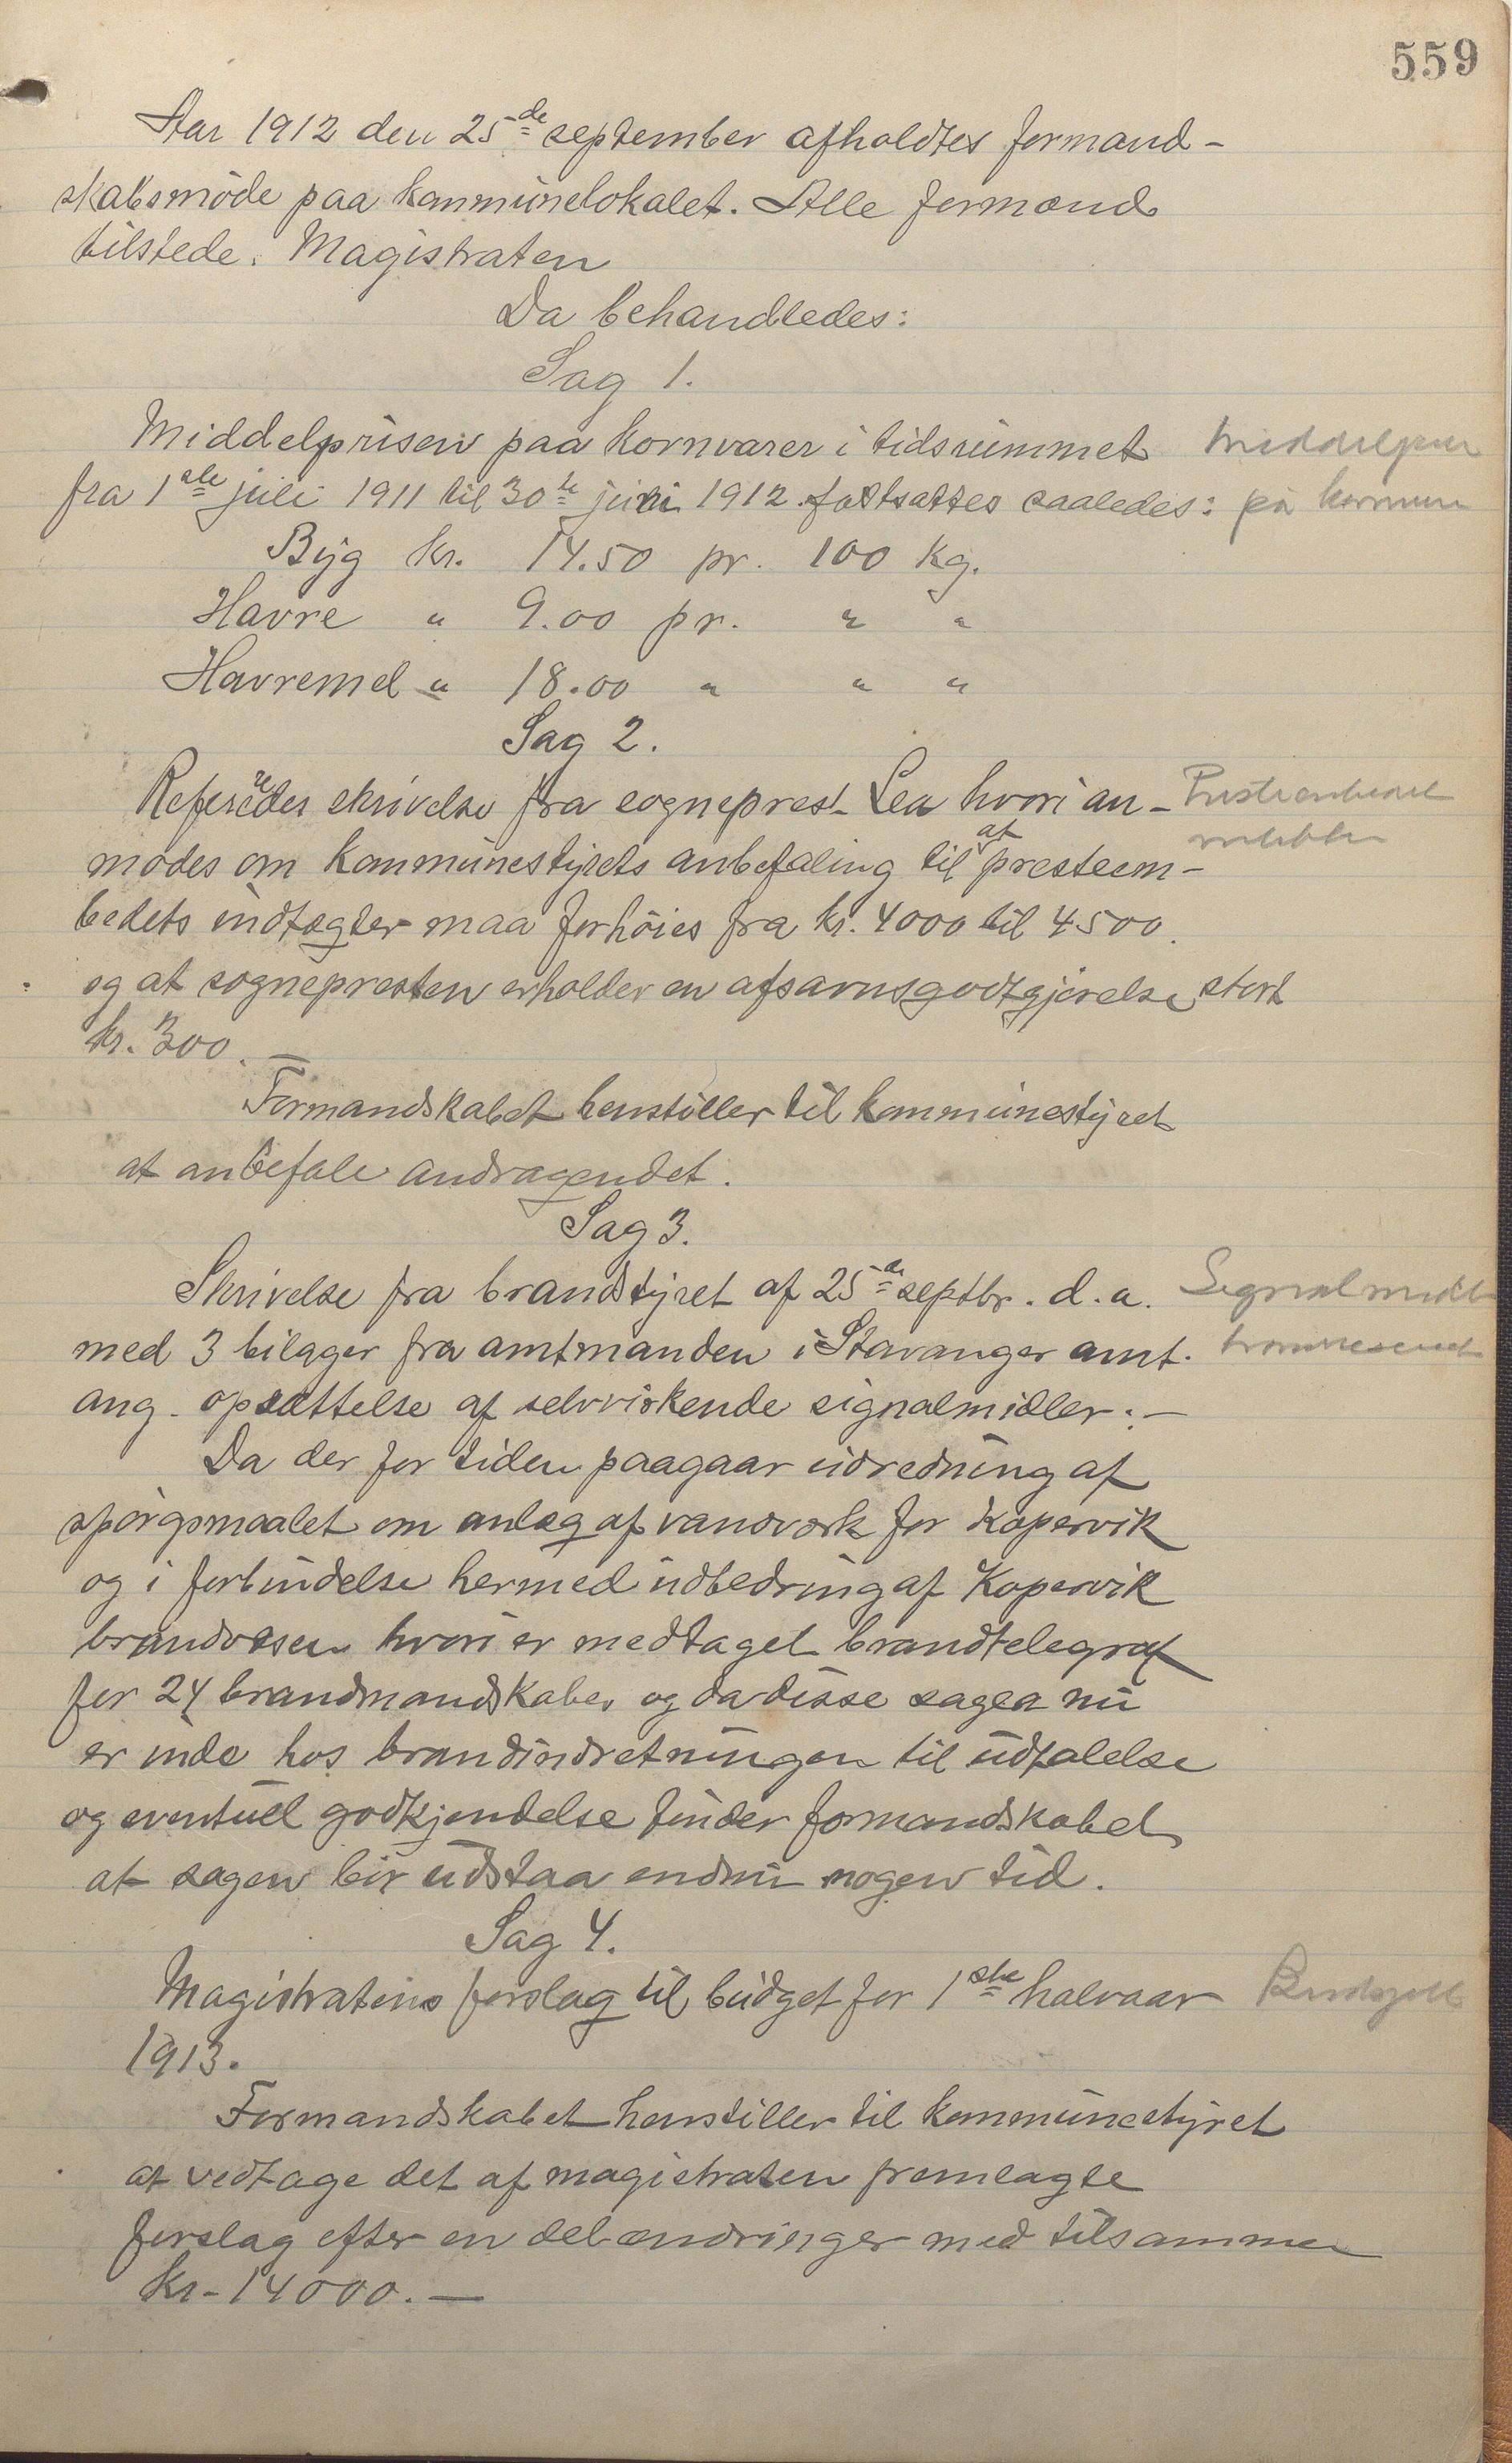 559
Aar 1912 den 25de september afholdtes formand-
skabsmöde paa kommunelokalet. Alle formænd
tilstede. Magistraten
Da behandledes:
Sag 1.
Middelprisen paa kornvarer i tidsrummet
fra 1ste juli 1911 til 30te juni 1912 fastsattes saaledes:
Middelpris
på kornvare
Byg kr. 14.50 pr. 100 kg.
Havre " 9.00 pr. " "
Havremel " 18.00 " " "
Sag 2.
Refereredes skrivelse fra sogneprest Lea hvori an-
modes om kommunestyrets anbefaling til at presteem-
Presteembedet
bedets indtægter maa forhöies fra kr. 4000 til 4500.
og at sognepresten erholder en afsavnsgodtgjörelse stort
kr. 300.—
Formandskabet henstiller til kommunestyret
at anbefale andragendet.
Sag 3.
Skrivelse fra brandstyret af 25de septbr. d.a.
med 3 bilager fra amtmanden i Stavanger amt.
Signalmidl
brandvesenet
ang. opsættelse af selvvirkende signalmidler.—
Da der for tiden paagaar udredning af
spörgsmaalet om anlæg af vandværk for Kopervik
og i forbindelse hermed udbedring af Kopervik
brandvæsen hvori er medtaget brandtelegraf
for 24 brandmandskaber og da disse sager nu
er inde hos brandindretningen til udtalelse
og eventuel godkjendelse finder formandskabet
at sagen bör udstaa endnu nogen tid.
Sag 4.
Magistratens forslag til budget for 1ste halvaar
1913.
Budsjett
Formandskabet henstiller til kommunestyret
at vedtage det af magistraten fremlagte
forslag efter en del ændringer med tilsammen
kr. 14000.—